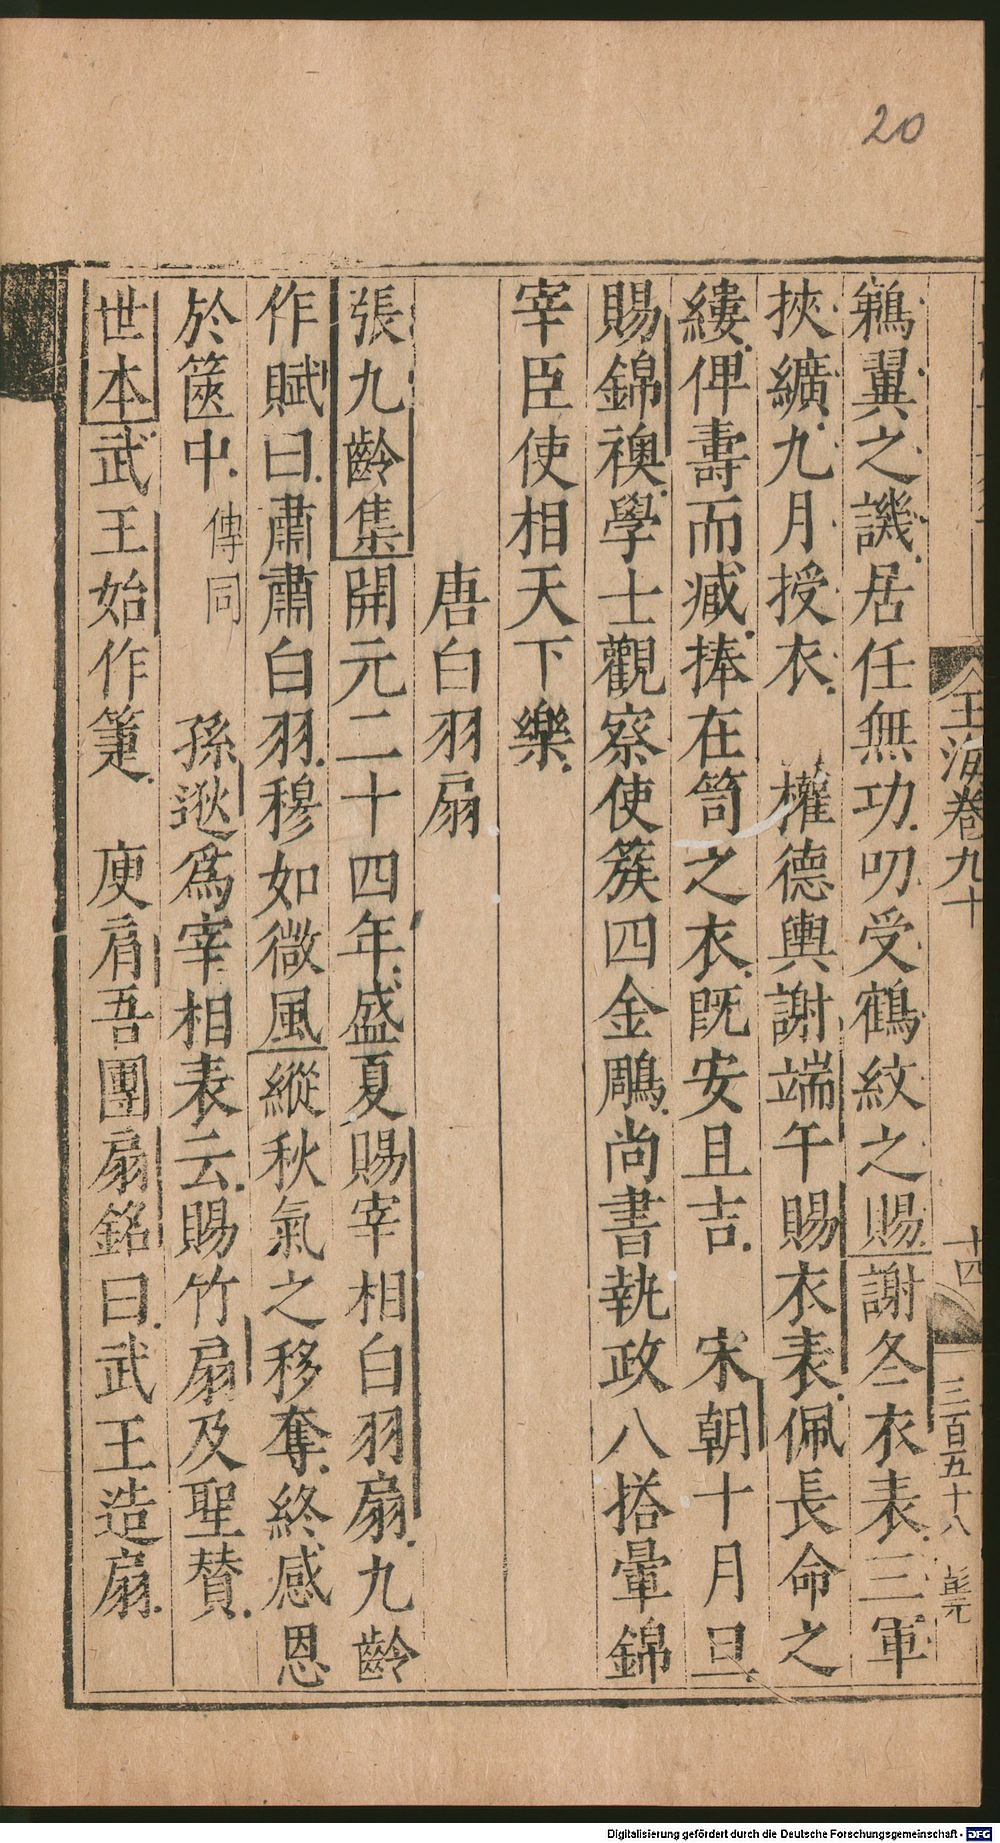 20
鵜翼之譏居任無功叨受鶴紋之賜謝冬衣表三軍
挾纊九月授衣　權德輿謝端午賜衣表佩長命之
縷俾壽而臧捧在笥之衣既安且吉　宋朝十月旦
賜錦襖學士觀察使簇四金鵰尚書執政八搭暈錦
宰臣使相天下樂
唐白羽扇
張九齡集開元二十四年盛夏賜宰相白羽扇九齡
作賦曰肅肅白羽穆如微風縱秋氣之移奪終感恩
於篋中傳同　孫逖爲宰相表云賜竹扇及聖賛
世本武王始作箑　庾肩吾團扇銘曰武王造扇
玉海卷九十
十四
三百五十八
Digitalisierung gefördert durch die Deutsche Forschungsgemeinschaft - DFG